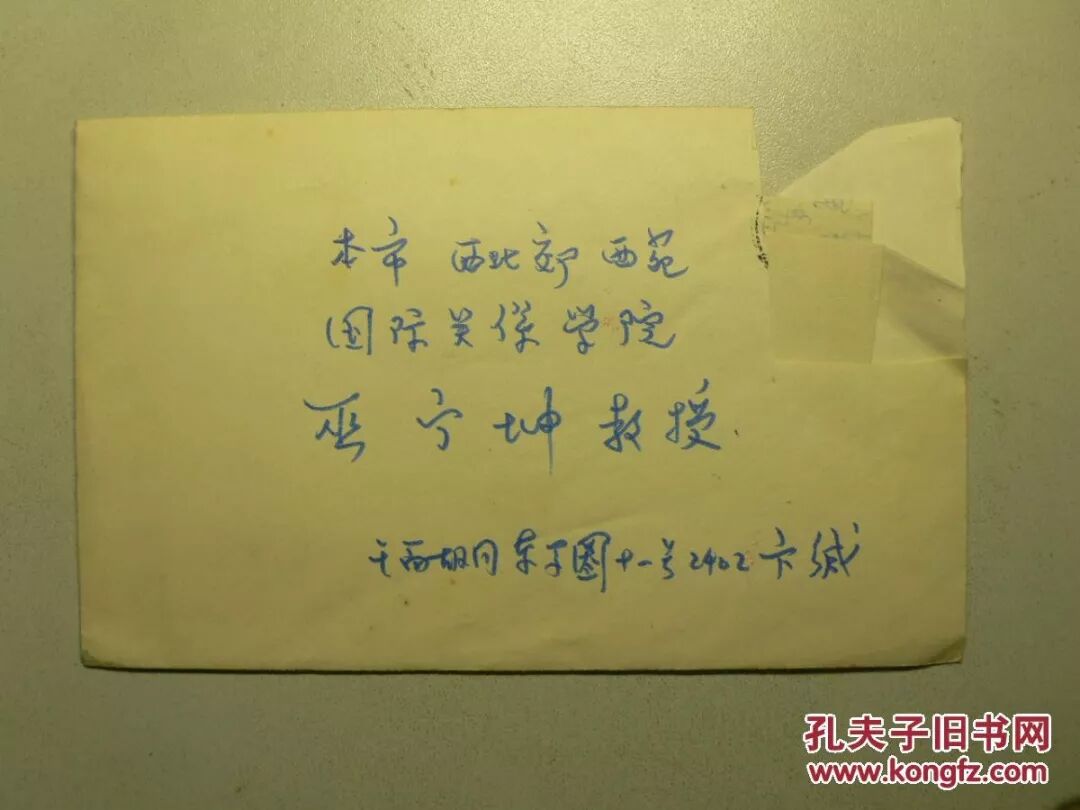 本市 西北郊 西苑
国际关係学院
巫宁坤教授
干面胡同东罗圈十一号2402 卞缄
孔夫子旧书网
www.kongfz.com